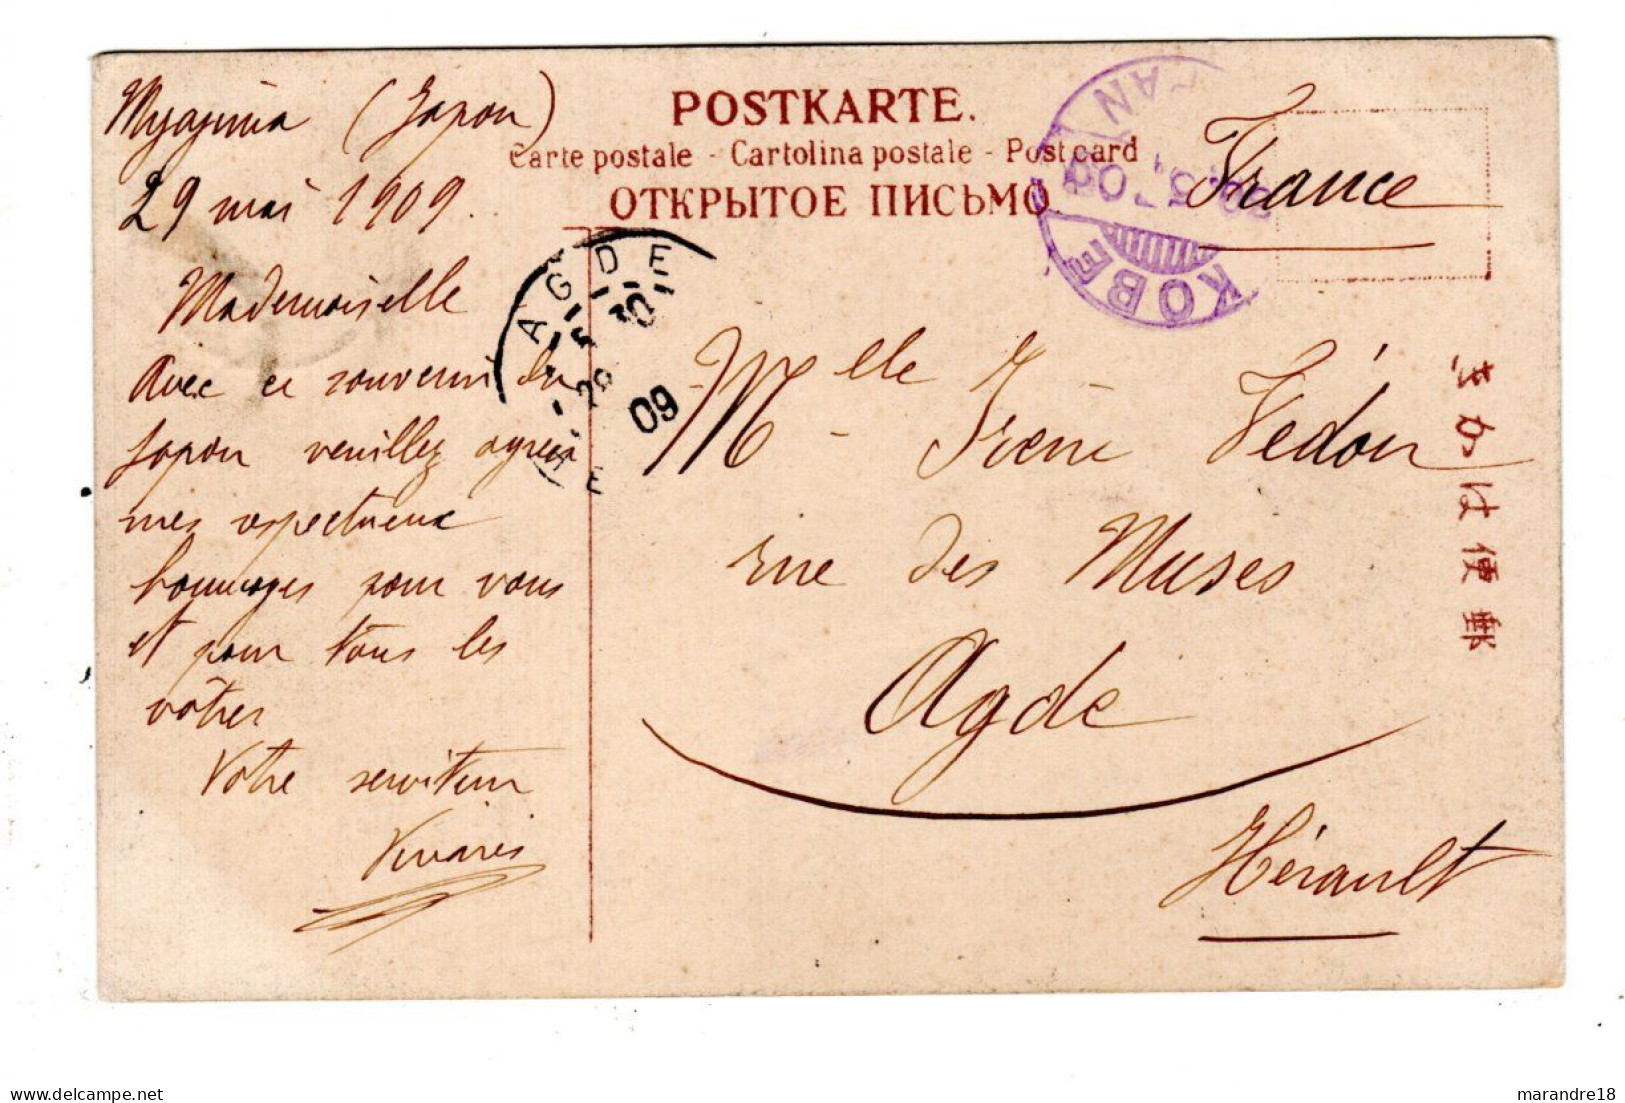 POSTKARTE.
Carte postale - Cartolina postale - Post card
ОТКРЫТОЕ ПИСЬМО.
Myajima (Japon)
29 mai 1909.
Mademoiselle
Avec ce souvenir du
Japon veuillez agréer
mes respectueux
hommages pour vous
et pour tous les
vôtres
Votre serviteur
Vivarès
AGDE
09
KOBE
JAPAN
France
Mlle Irène Védour
rue des Muses
Agde
Hérault
郵便はかき
marandre18